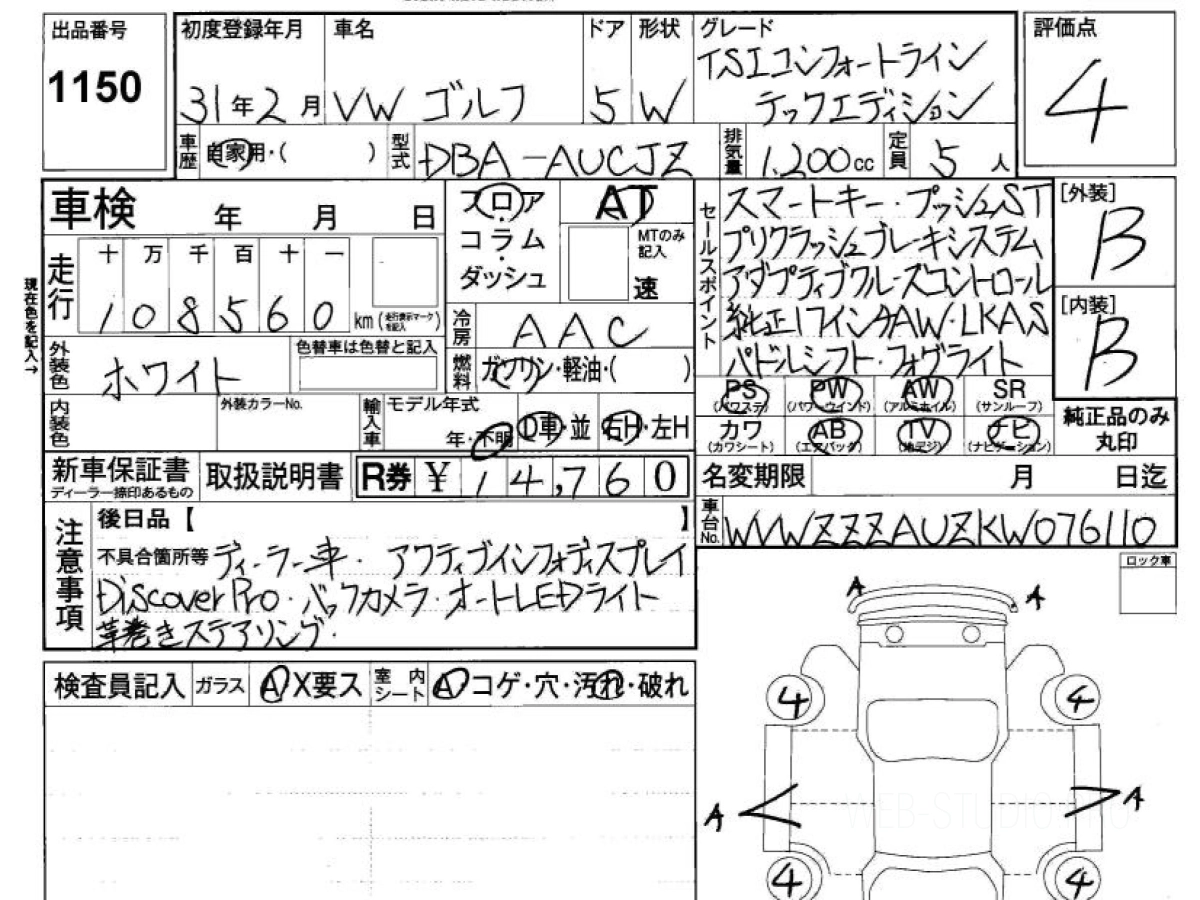 出品番号
1150
初度登録年月
31年2月
車名
VW ゴルフ
ドア
5
形状
W
グレード
TSIコンフォートライン
テックエディション
評価点
4
車歴
自家用・( )
型式
DBA-AUCJZ
排気量
1,200cc
定員
5人
車検 年 月 日
フロア
コラム
ダッシュ
AT
MTのみ
記入
速
セールスポイント
スマートキー・プッシュST
プリクラッシュブレーキシステム
アダプティブクルーズコントロール
純正17インチAW・LKAS
パドルシフト・フォグライト
[外装]
B
[内装]
B
現在色を記入→
走行
十 万 千 百 十 一
1 0 8 5 6 0 km(走行表示マークを記入)
冷房
AAC
外装色
ホワイト
色替車は色替と記入
燃料
ガソリン・軽油・( )
PS
(パワステ)
PW
(パワーウインド)
AW
(アルミホイル)
SR
(サンルーフ)
カワ
(カワシート)
AB
(エアバッグ)
TV
(地デジ)
ナビ
(ナビゲーション)
純正品のみ
丸印
内装色
外装カラーNo.
輸入車
モデル年式
年・不明
D車・並
右H・左H
新車保証書
ディーラー捺印あるもの
取扱説明書
R券 ¥ 14,760
名変期限 月 日迄
車台No.
WVWZZZAUZKW076110
注意事項
後日品【 】
不具合箇所等 ディーラー車・アクティブインフォディスプレイ
DiscoverPro・バックカメラ・オートLEDライト
革巻きステアリング・
ロック車
検査員記入
ガラス
A X要ス
室内
シート
A コゲ・穴・汚れ・破れ
A A
4 4
A A
4 4
WEB-STUDIO.PRO